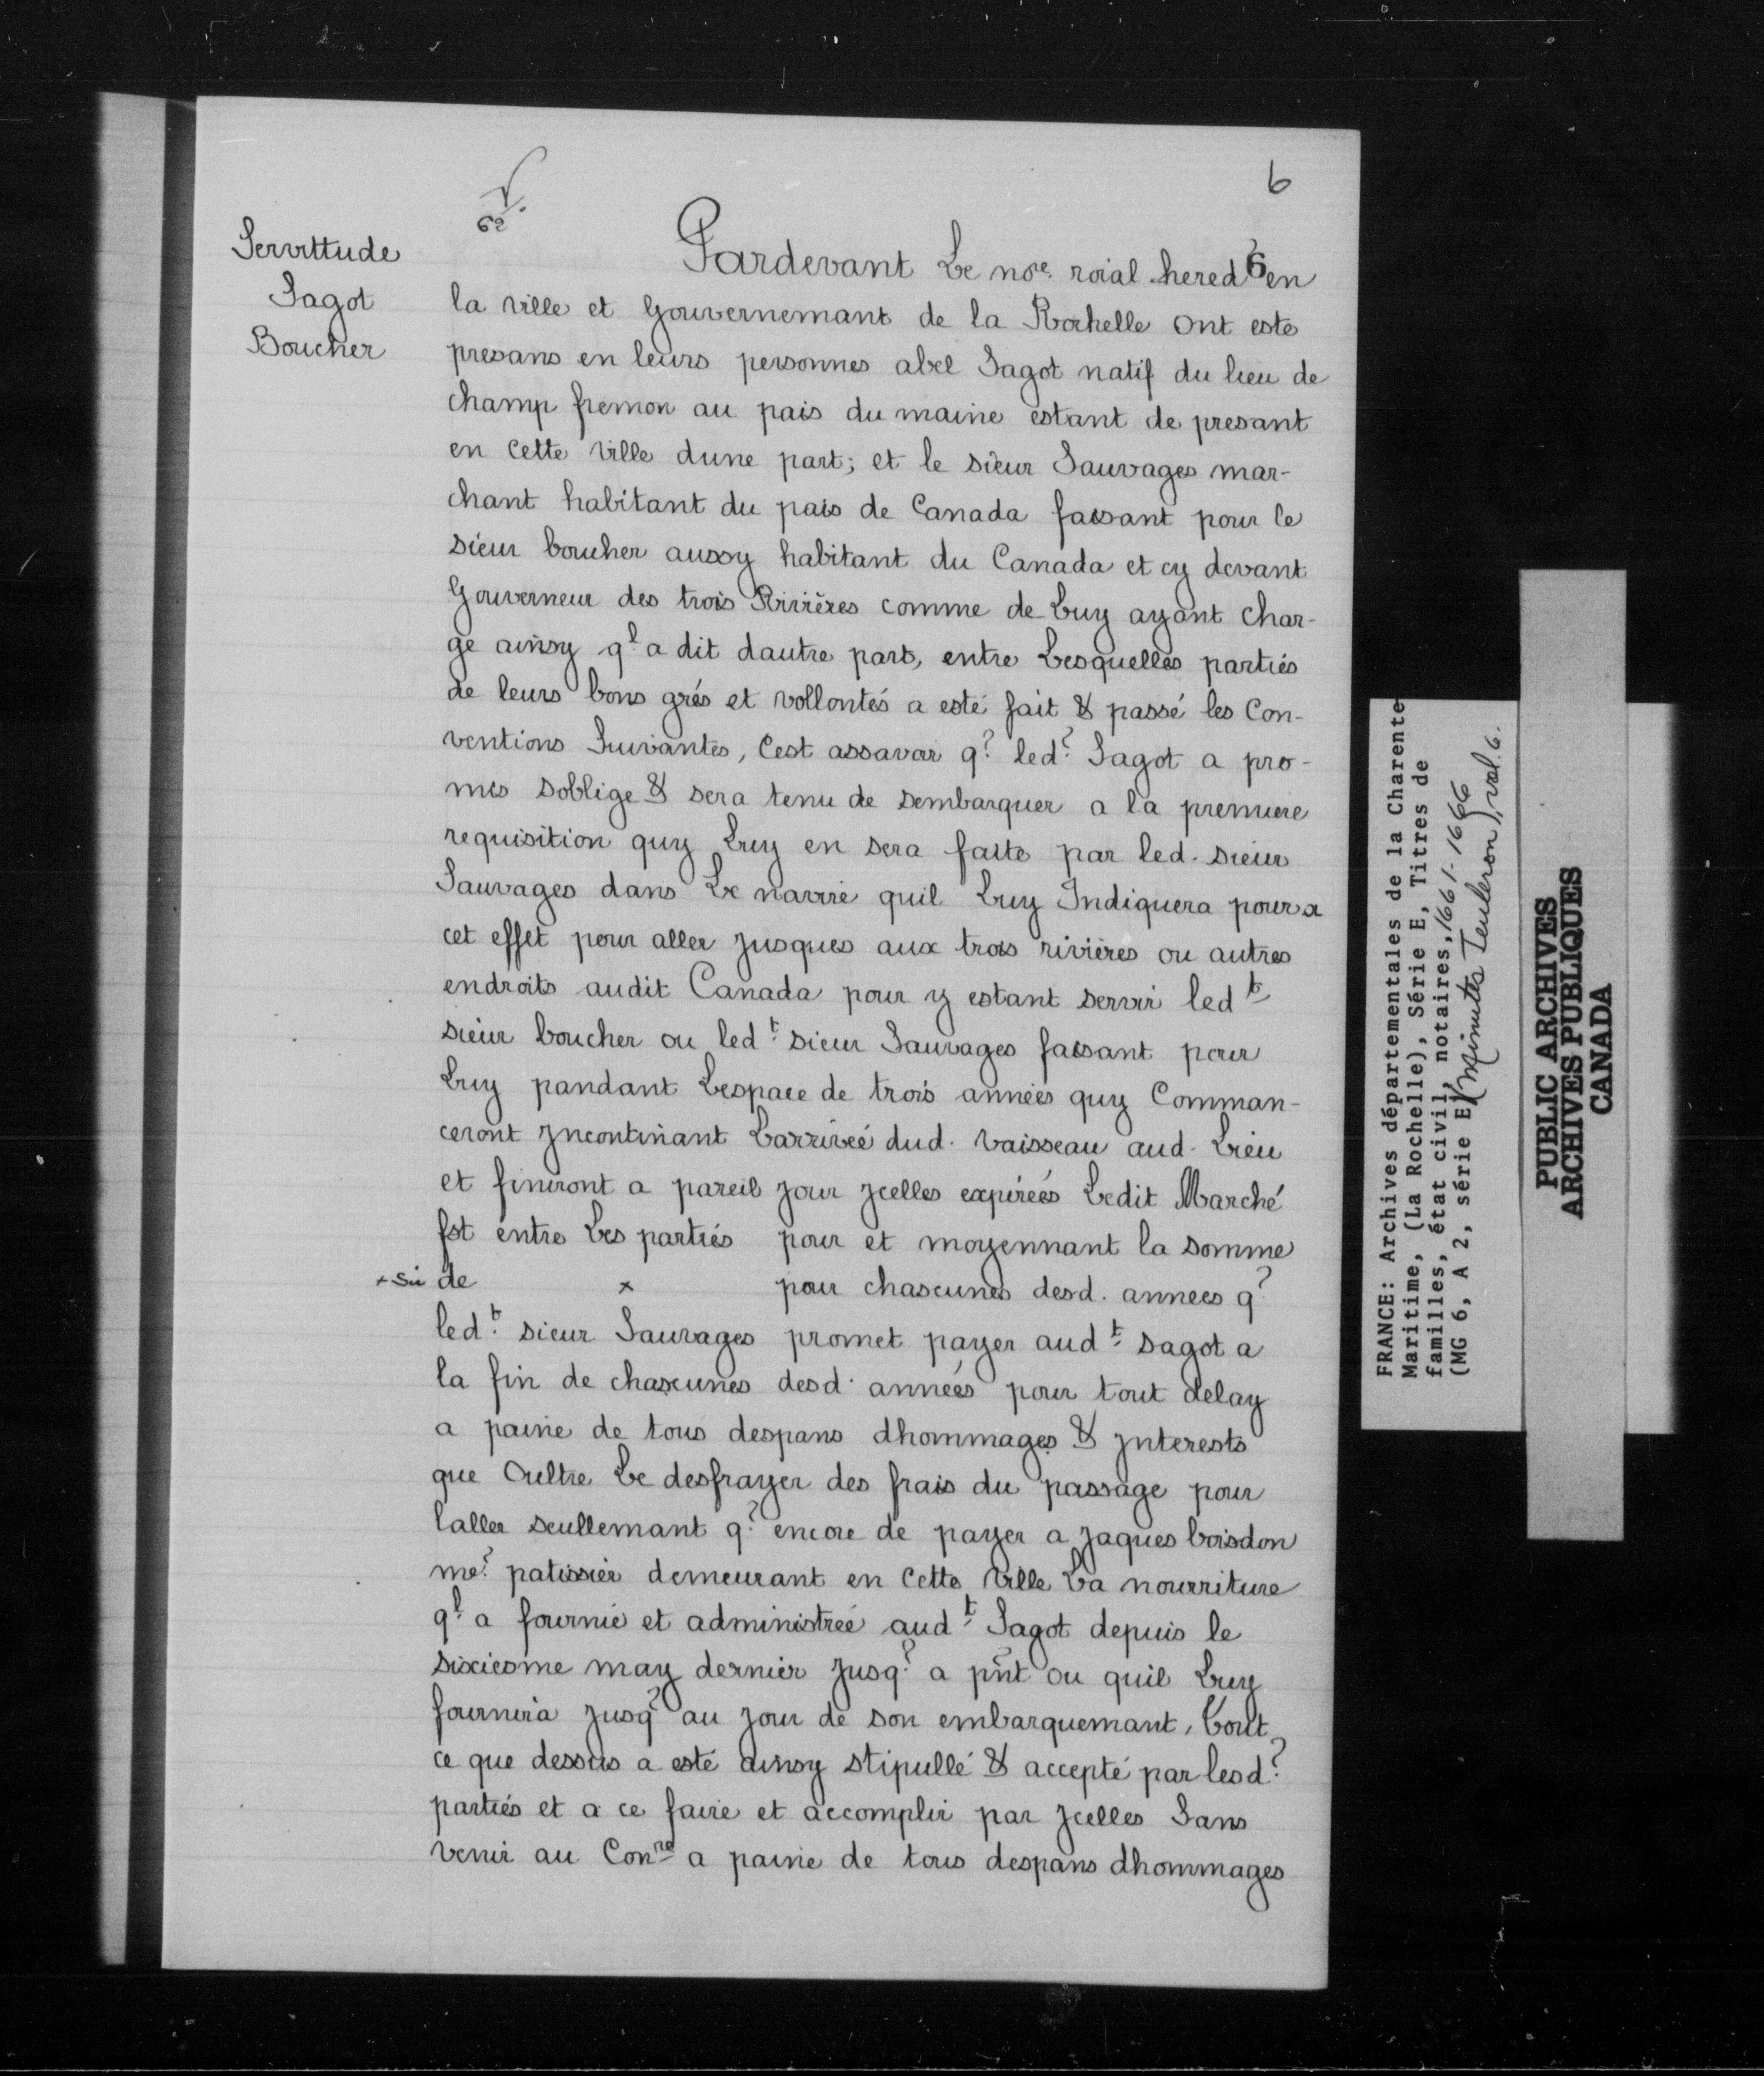 6
6e
Servittude
Sagot
Boucher
Pardevant Le nore roial heredre en
la ville et Gouvernemant de la Rochelle ont este
presans en leurs personnes abel Sagot natif du lieu de
champ fremon au pais du maine estant de presant
en cette ville dune part; et le sieur Sauvages mar-
chant habitant du pais de Canada faisant pour le
sieur boucher aussy habitant du Canada et cy devant
Gouverneur des trois Rivières comme de Luy ayant char-
ge ainsy ql a dit dautre part, entre Lesquelles partiés
de leurs bons grés et vollontés a esté fait & passé les Con-
ventions Suivantes, Cest assavoir q? led? Sagot a pro-
mis soblige & sera tenu de sembarquer a la premiere
requisition quy Luy en sera faite par led. sieur
Sauvages dans Le navire quil Luy Indiquera pour a
cet effet pour aller jusques aux trois rivières ou autres
endroits audit Canada pour y estant servir ledt
sieur boucher ou ledt sieur Sauvages faisant pour
Luy pandant Lespace de trois années quy Comman-
ceront yncontinant Larriveé dud. vaisseau aud. Lieu
et finiront a pareil jour ycelles expireés Ledit Marché
fst entre Les partiés pour et moyennant la somme
+ sic de x pour chascunes desd. annees q?
ledt sieur Sauvages promet payer audt sagot a
la fin de chascunes desd. années pour tout delay
a paine de tous despans dhommages & ynterests
que Oultre Le desfrayer des frais du passage pour
laller seullemant q? encore de payer a jaques boisdon
me? patissier demeurant en Cette ville La nourriture
ql a fournie et administreé audt Sagot depuis le
sixiesme may dernier jusq? a pñt ou quil Luy
fournira jusq? au jour de son embarquemant, Tout
ce que dessus a esté ainsy stipullé & accepté par lesd?
partiés et a ce faire et accomplir par ycelles Sans
venir au Conre a paine de tous despans dhommages
FRANCE: Archives départementales de la Charente
Maritime, (La Rochelle), Série E, Titres de
familles, état civil, notaires, 1661-1666
(MG 6, A 2, série E) (Minutes Teuleron), vol. 6.
PUBLIC ARCHIVES
ARCHIVES PUBLIQUES
CANADA